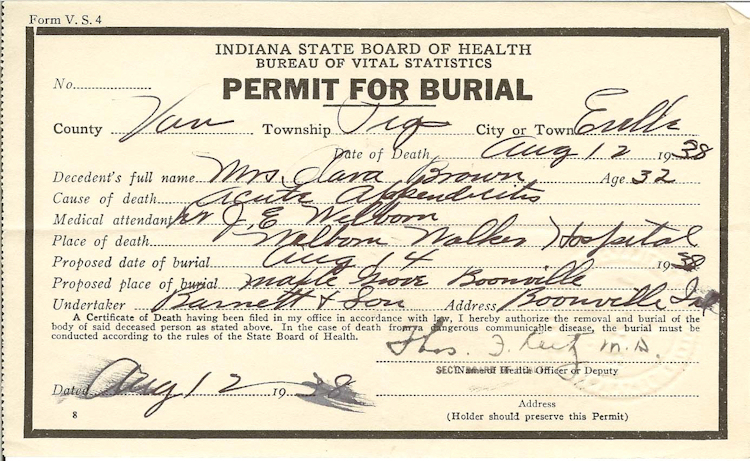 Form V. S. 4
INDIANA STATE BOARD OF HEALTH
BUREAU OF VITAL STATISTICS
No.
PERMIT FOR BURIAL
County Van Township Pig City or Town Eville
Date of Death Aug 12 1938
Decedent's full name Mrs. Clara Brown Age 32
Cause of death Acute Appendicitis
Medical attendant Dr J. E. Welborn
Place of death Welborn Walker Hospital
Proposed date of burial Aug 14 1938
Proposed place of burial Maple Grove Boonville
Undertaker Barnett & Son Address Boonville Ind
A Certificate of Death having been filed in my office in accordance with law, I hereby authorize the removal and burial of the
body of said deceased person as stated above. In the case of death from a dangerous communicable disease, the burial must be
conducted according to the rules of the State Board of Health.
Thos. J. M.D.
Health Officer or Deputy
Dated Aug 12 1938
Address
8
(Holder should preserve this Permit)